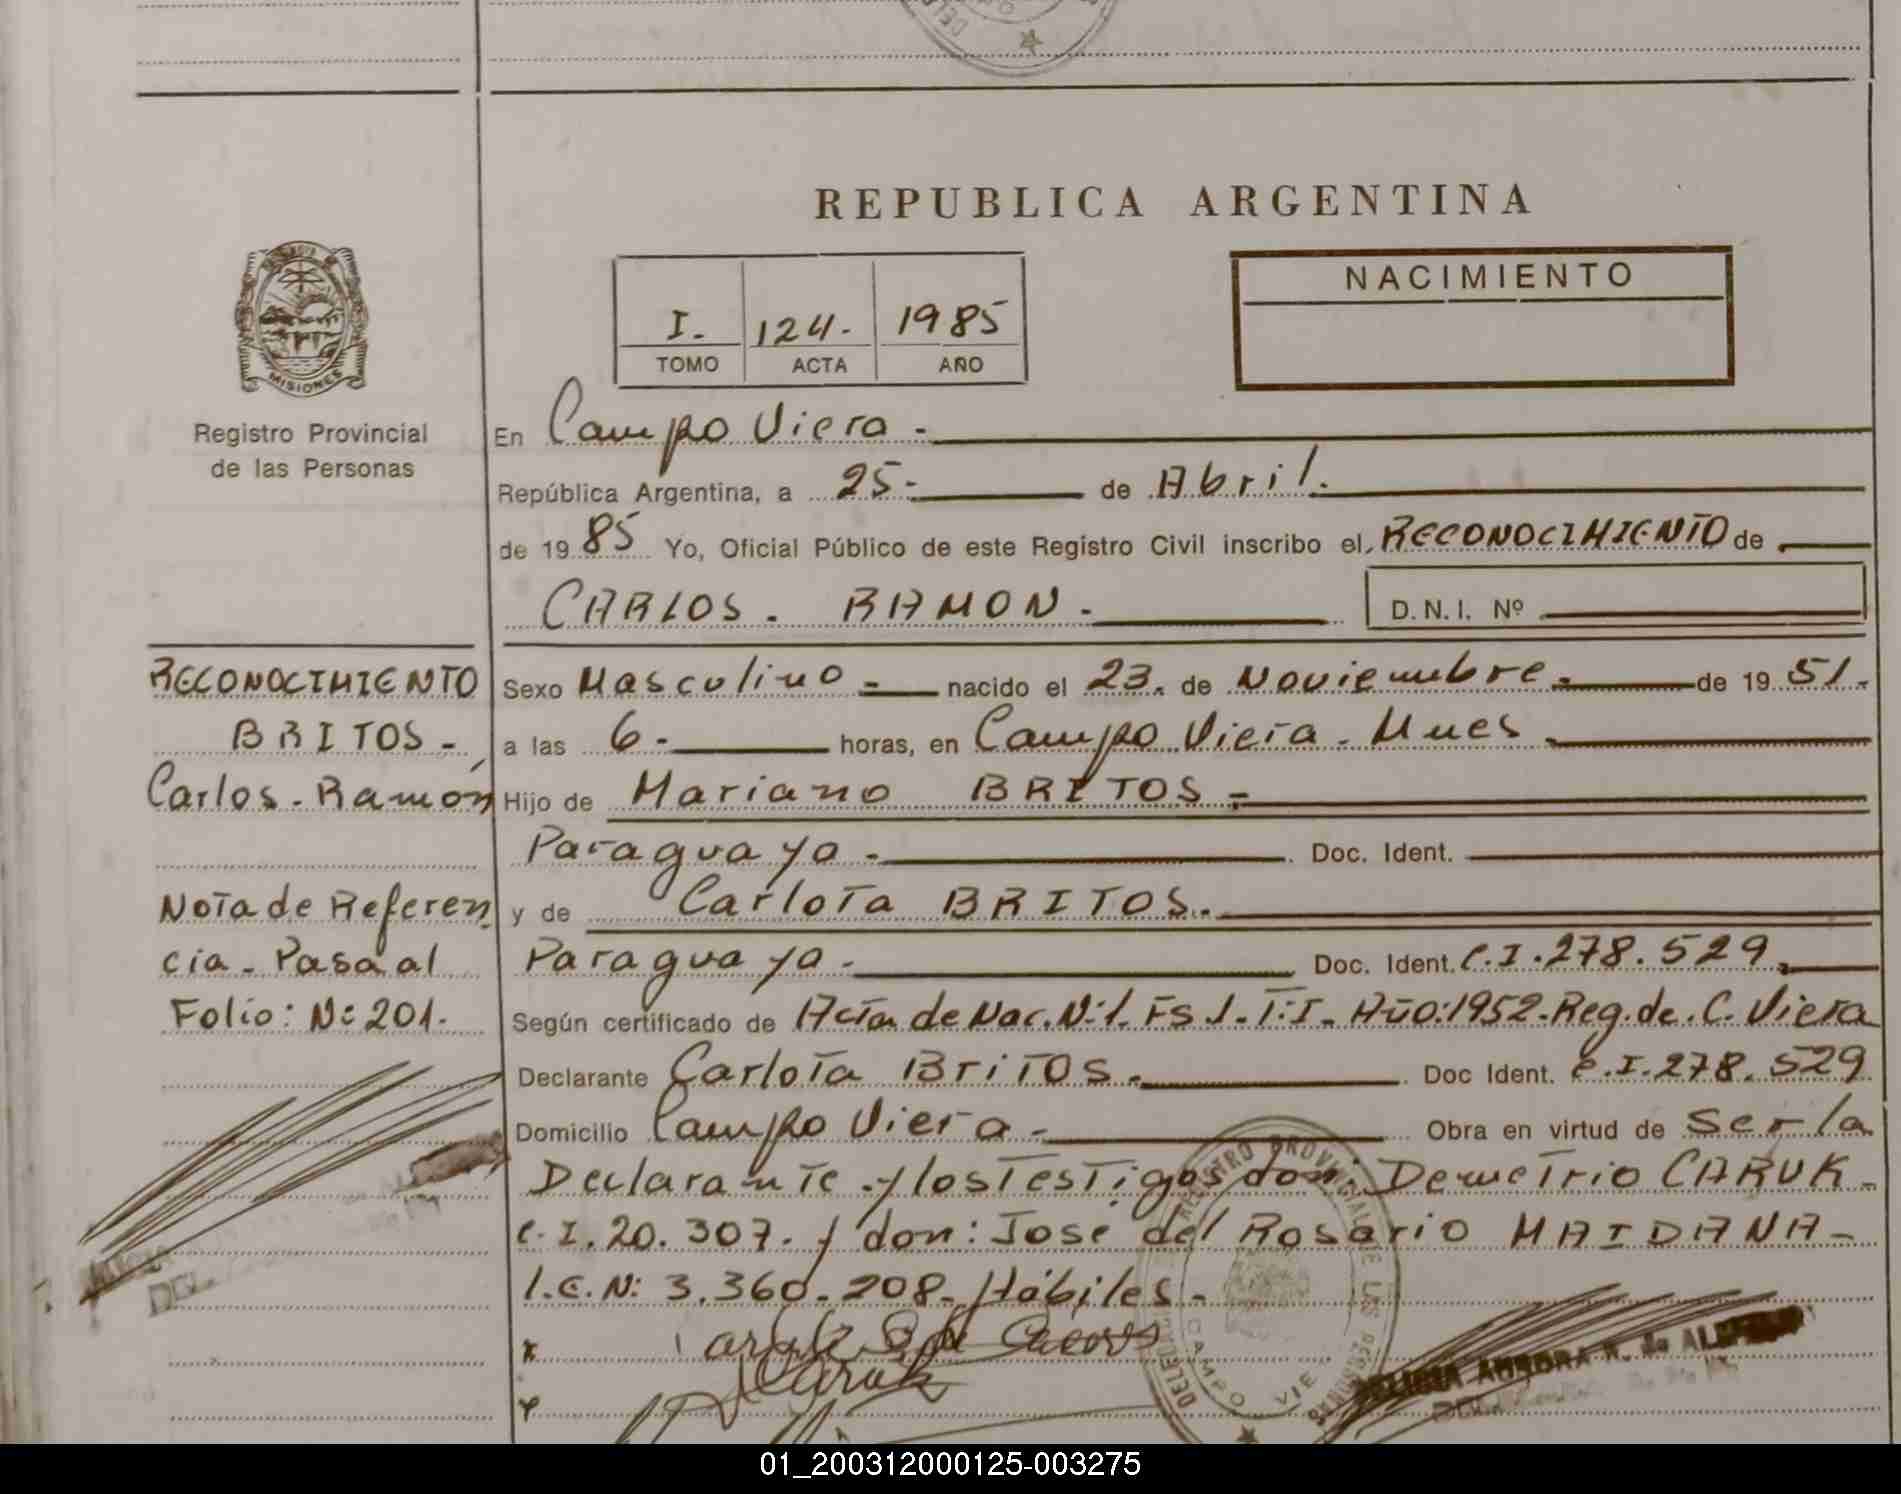 REPUBLICA ARGENTINA
NACIMIENTO
I. 124. 1985
TOMO ACTA AÑO
MISIONES
Registro Provincial
de las Personas
En Campo Viera.
República Argentina, a 25. de Abril.
de 19 85 Yo, Oficial Público de este Registro Civil inscribo el RECONOCIMIENTO de
CARLOS. RAMON. D.N.I. Nº
RECONOCIMIENTO
BRITOS.
Carlos. Ramón
Nota de Referen
cia. Pasa al
Folio: Nº 201.
Sexo Masculino nacido el 23. de Noviembre. de 19 51.
a las 6. horas, en Campo Viera. Mnes.
Hijo de Mariano BRITOS.
Paraguayo. Doc. Ident.
y de Carlota BRITOS.
Paraguaya. Doc. Ident. C.I. 278.529.
Según certificado de Acta de Nac. Nº 1. Fs 1. Tº I. Año: 1952. Reg. de C. Viera
Declarante Carlota BRITOS. Doc Ident. C.I. 278.529
Domicilio Campo Viera. Obra en virtud de Ser la
Declarante y los Testigos don: Demetrio CARUK.
C.I. 20.307. y don: José del Rosario MAIDANA.
l.E. Nº 3.360.208. Hábiles.
REGISTRO PROVINCIAL DE LAS PERSONAS
CAMPO VIE
AURORA R. de
01_200312000125-003275